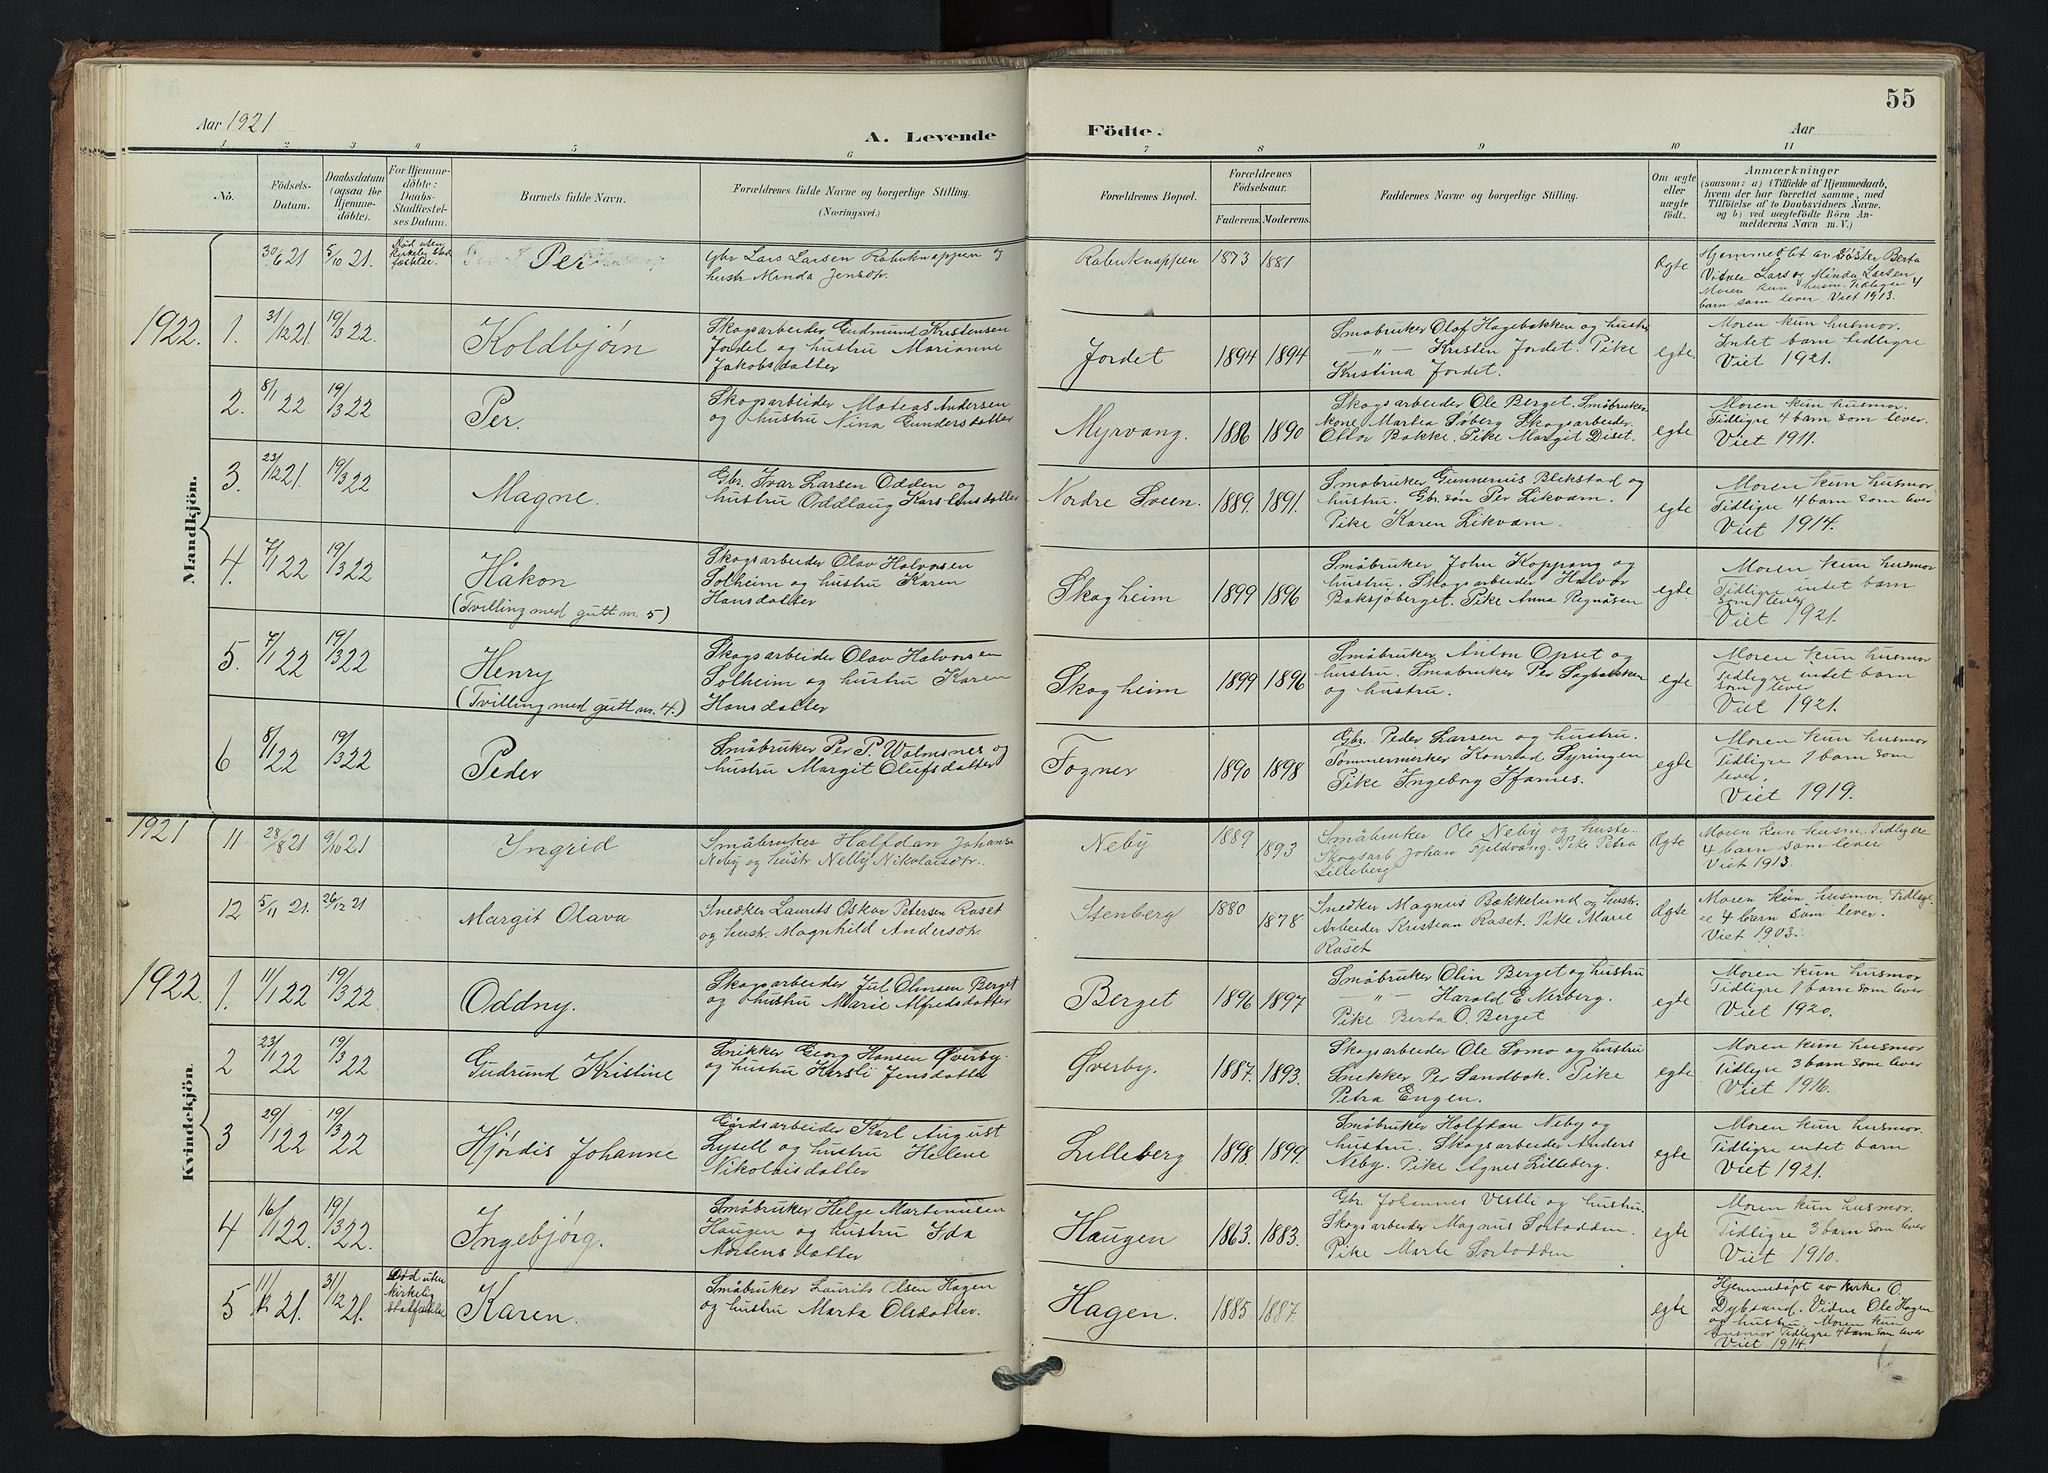 55
Aar 1921
A. Levende
Födte.
Aar
1
2
3
4
5
6
7
8
9
10
11
No.
Födsels-
Datum.
Daabsdatum
(ogsaa for
Hjemme-
döbte).
For Hjemme-
döbte:
Daabs-
Stadfæstel-
ses Datum.
Barnets fulde Navn.
Forældrenes fulde Navne og borgerlige Stilling.
(Næringsvei.)
Forældrenes Bopæl.
Forældrenes
Födselsaar.
Faderens.
Moderens.
Faddernes Navne og borgerlige Stilling.
Om ægte
eller
uægte
födt.
Anmærkninger
(saasom: a) i Tilfælde af Hjemmedaab,
hvem der har forrettet samme, med
Tilföielse af to Daabsvidners Navne,
og b) ved uægtefödte Börn An-
melderens Navn m. V.)
Mandkjön.
30/6 21
5/10 21.
Död uten
kirkelig stad
fæstelse.
Per
Gbr Lars Larsen Rabuknappen og
hustr Minda Jensdr.
Rabuknappen
1873
1881
Ægte
Hjemmedöbt av Söster Berta
Vidner Lars og Minda Larsen
Moren kun husm. Tidligere 4
barn som lever. Viet 1913.
1922.
1.
31/12 21.
19/3 22.
Koldbjörn
Skogsarbeider Gudmund Kristensen
Jordet og hustru Marianne
Jakobsdatter
Jordet
1894
1894
Småbruker Olof Hagebakken og hustru
—"— Kristen Jordet. Pike
Kristina Jordet.
egte.
Moren kun husmor.
Intet barn tidligre
Viet 1921.
2.
8/1 22
19/3 22
Per.
Skogsarbeider Mateas Andersen
og hustru Nina Gundersdatter
Myrvang.
1886
1890
Skogsarbeider Ole Berget. Småbruker-
kone Martea Söberg Skogsarbeider
Ottar Bakke. Pike Margit Diset.
egte
Moren kun husmor.
Tidligre 4 barn som lever.
Viet 1911.
3.
23/12 21.
19/3 22
Magne.
Gbr. Ivar Larsen Odden og
hustru Oddlaug Karstensdatter
Nordre Sveen.
1889.
1891.
Småbruker Gunnerius Blekstad og
hustru. Gbr.sön Per Likvam.
Pike Karen Likvam.
egte
Moren kun husmor
Tidligre 4 barn som lever
Viet 1914.
4.
7/1 22
19/3 22
Håkon
(Tvilling med gutt nr. 5)
Skogsarbeider Olav Halvorsen
Solheim og hustru Karen
Hansdatter
Skogheim
1899
1896
Småbruker John Koppang og
hustru. Skogsarbeider Halvor
Baksjöberget. Pike Anna Regnåsen
egte.
Moren kun husmor
Tidligre intet barn
som lever
Viet 1921.
5.
7/1 22
19/3 22
Henry
(Tvilling med gutt nr. 4.)
Skogsarbeider Olav Halvorsen
Solheim og hustru Karen
Hansdatter
Skogheim
1899
1896
Småbruker Anton Opset og
hustru. Småbruker Per Sagbakken
og hustru.
egte
Moren kun husmor
Tidligre intet barn
som lever
Viet 1921.
6
8/1 22
19/3 22
Peder
Småbruker Per P. Walmsnes og
hustru Margit Olufsdatter
Fogner
1890
1898
Gbr. Peder Larsen og hustru.
Tömmermerker Konrad Syringen
Pike Ingeborg
egte
Moren kun husmor
Tidligre 1 barn som
lever.
Viet 1919.
Kvindekjön.
1921
11
28/8 21
9/10 21
Ingrid
Småbruker Halfdan Johans
Neby og hustr. Nelly Nikolaisdr.
Neby
1889
1893
Småbruker Ole Neby og hustr.
Skogsarb Johan Fjeldvang. Pike Petra
Lilleberg
Ægte
Moren kun husm. Tidligere
4 barn som lever
Viet 1913.
12
5/11 21.
26/12 21
Margit Olava
Snedker Laurits Oskar Petersen Raset
og hustr. Magnhild Andersdr.
Stenberg
1880
1878
Snedker Magnus Bækkelund og hustr.
Arbeider Kristian Raset. Pike Marie
Raset
Ægte
Moren kun husmor Tidlige-
re 4 barn som lever.
Viet 1903.
1922.
1.
11/1 22
19/3 22
Oddny.
Skogsarbeider Jul Olinsen Berget
og hustru Marie Alfredsdatter
Berget
1896
1897
Småbruker Olin Berget og hustru
—"— Harald E. Nerberg.
Pike Berta O. Berget
egte
Moren kun husmor
Tidligre 1 barn som lever.
Viet 1920.
2
23/1 22
19/3 22
Gudrund Kristine
Snikker Georg Hansen Överby.
og hustru Kersti Jensdatter
Överby.
1887.
1893.
Skogsarbeider Ole Somo og hustru
Snekker Per Sandbok. Pike
Petra Engen.
egte
Moren kun husmor
Tidligre 3 barn som lever
Viet 1916.
3
29/1 22
19/3 22
Hjördis Johanne
Gårdsarbeider Karl August
Lysell og hustru Helene
Nikolaisdatter
Lilleberg
1898.
1899.
Småbruker Halfdan Neby og
hustru. Skogsarbeider Anders
Neby. Pike Agnes Lilleberg.
egte
Moren kun husmor.
Tidligre intet barn
Viet 1921.
4
16/1 22.
19/3 22.
Ingebjörg.
Småbruker Helge Martinusen
Haugen og hustru Ida
Mortensdatter
Haugen
1863.
1883.
Gbr. Johannes Vestli og hustru.
Skogsarbeider Magnus Sorbodden.
Pike Marte Sorbodden
egte
Moren kun husmor.
Tidligre 3 barn som lever
Viet 1910.
5
11/12 21.
31/12 21.
Död uten
kirkelig
statfestelse
Karen.
Småbruker Laurits Olsen Hagen
og hustru Marta Olsdatter.
Hagen.
1885
1887.
egte
Hjemmedöpt av kirkes. O.
Dybsand. Vidne Ole Hagen
og hustru. Moren kun
husmor Tidligre 4 barn som lever
Viet 1914.